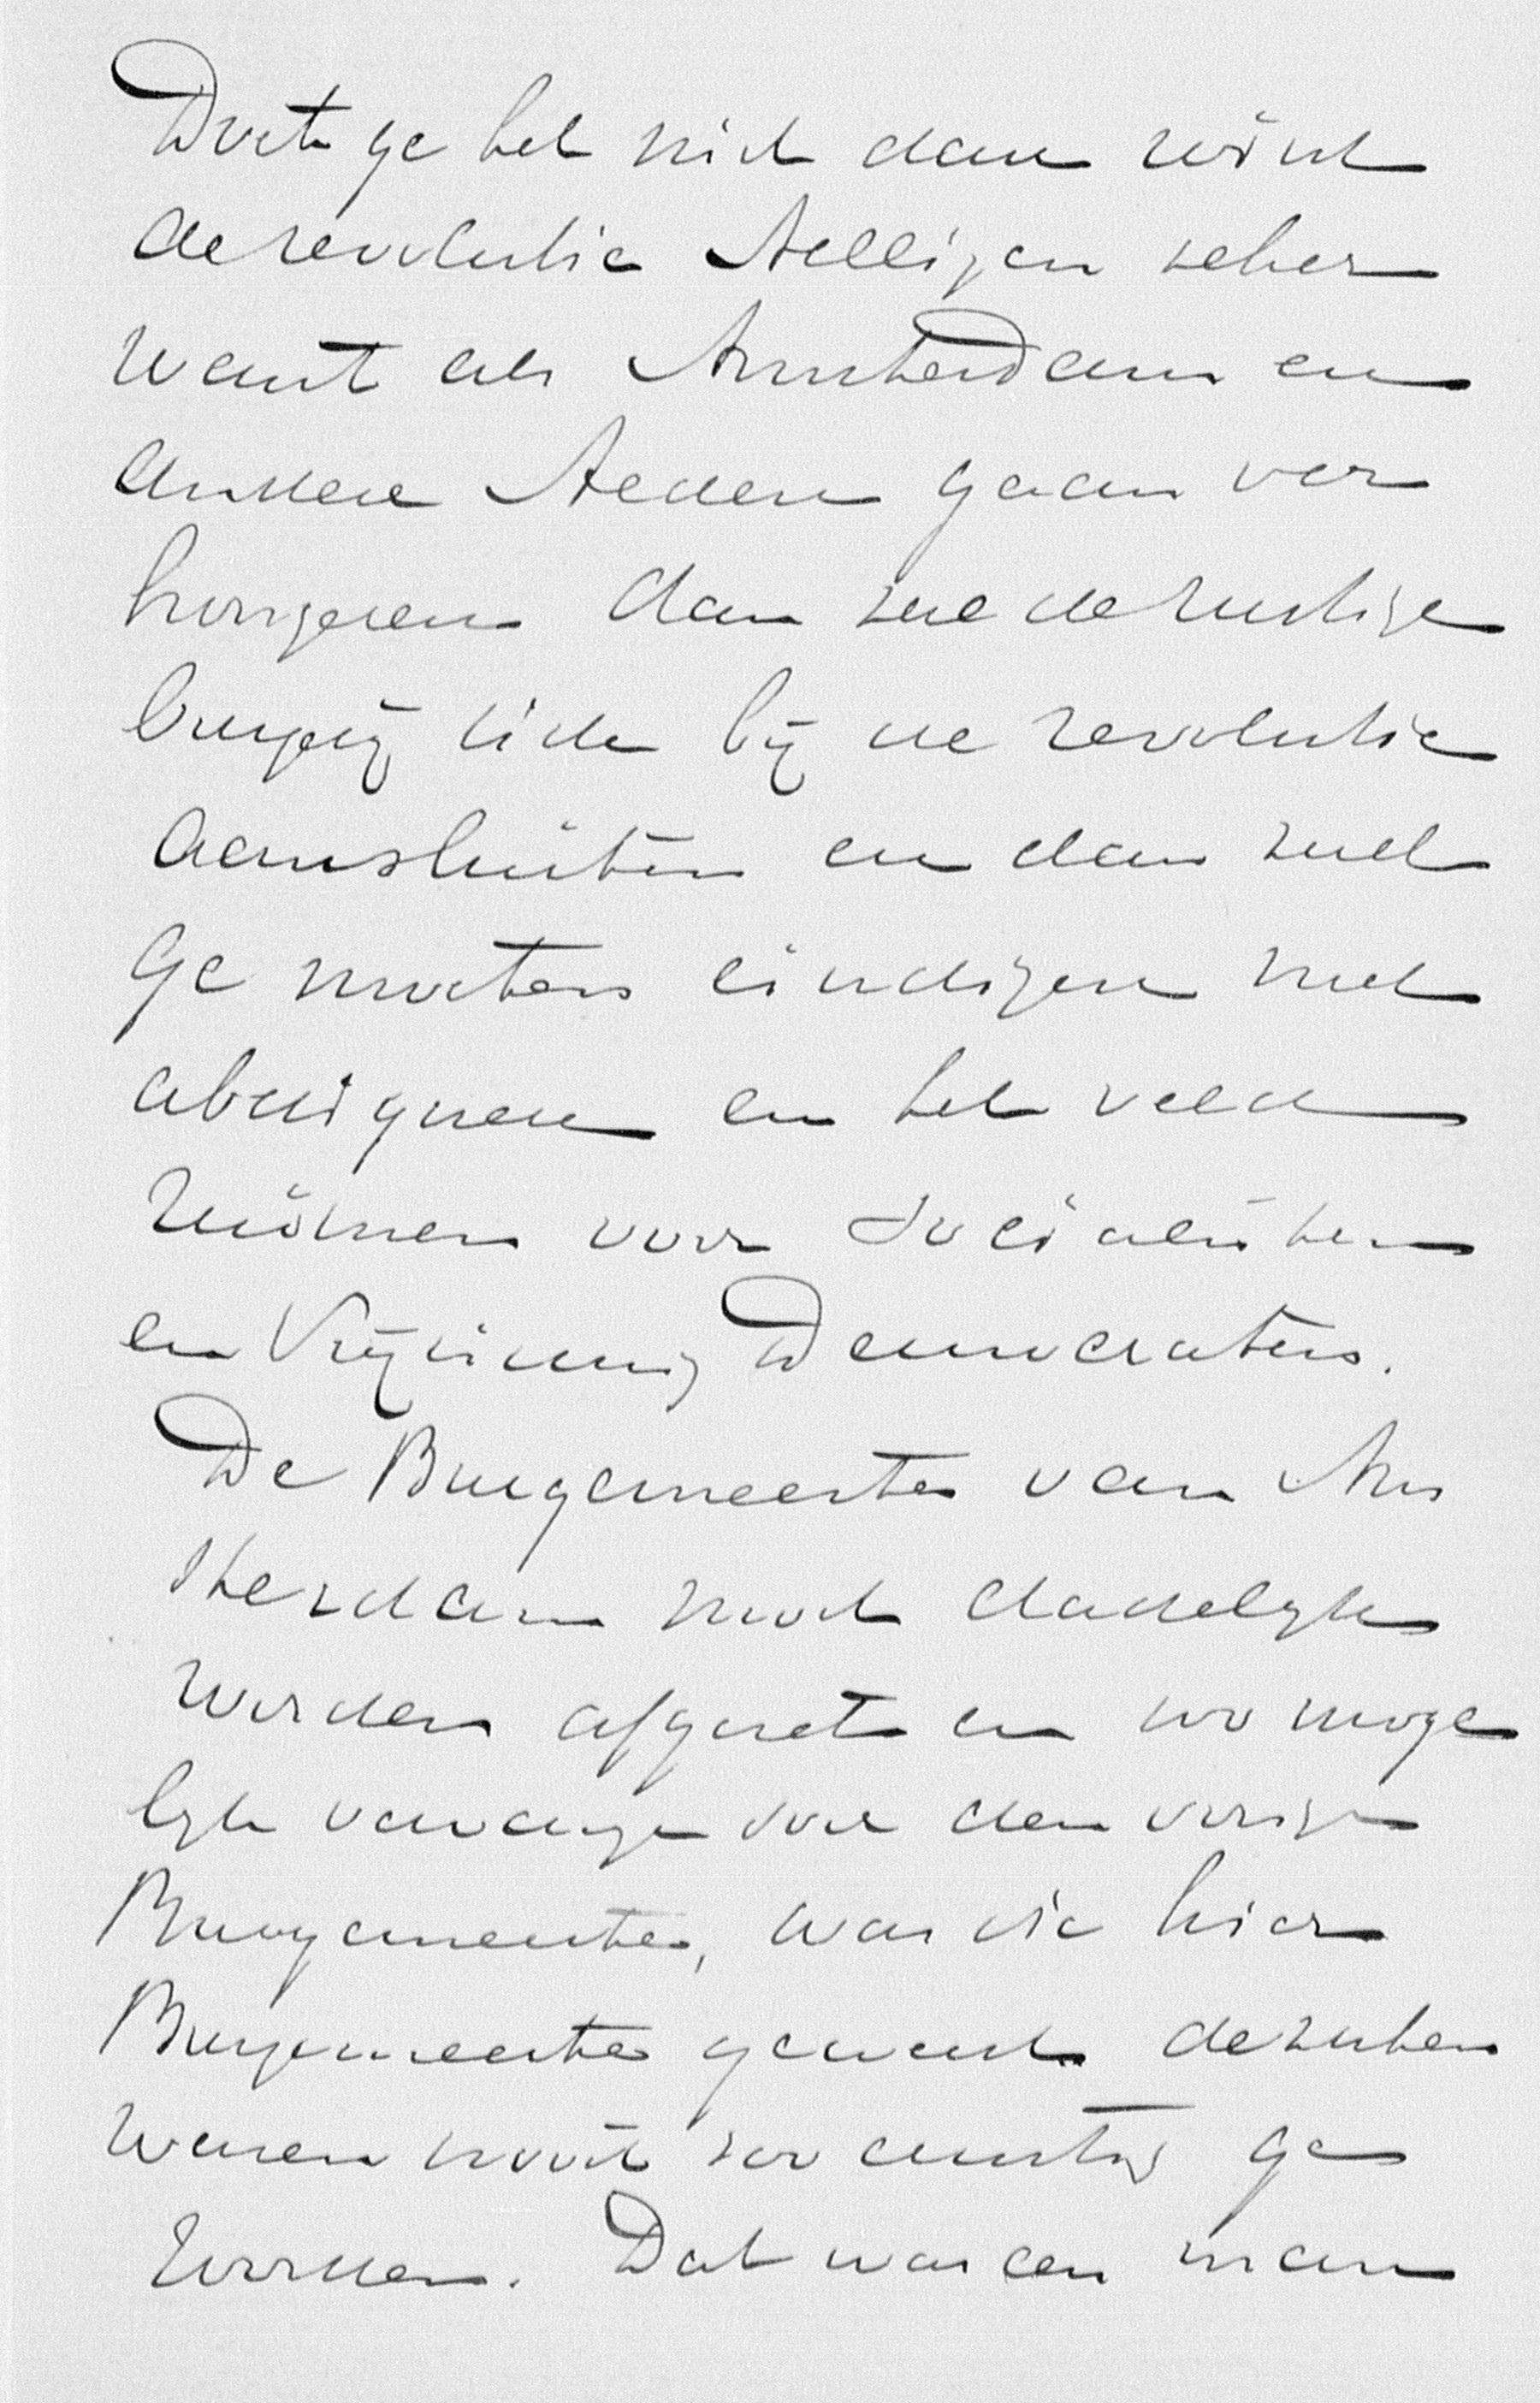 Doet ge het niet dan wint
de revolutie stelligen zeker
want als Amsterdam en
andere steden gaan ver
hongeren dan zal de rustige
burgerij zich bij de revolutie
aansluiten en dan zult
ge moeten eindigen met
abdiqueren en het veld
ruimen voor Socialisten
en Vrijzinnig Democraten.
De Burgemeester van Am
sterdam moet dadelijk
worden afgezet en zoo moge
lijk vervangen door den vorigen
Burgemeester, was die hier
Burgemeester geweest de zaken
waren nooit zoo ernstig ge
worden. Dat was een man